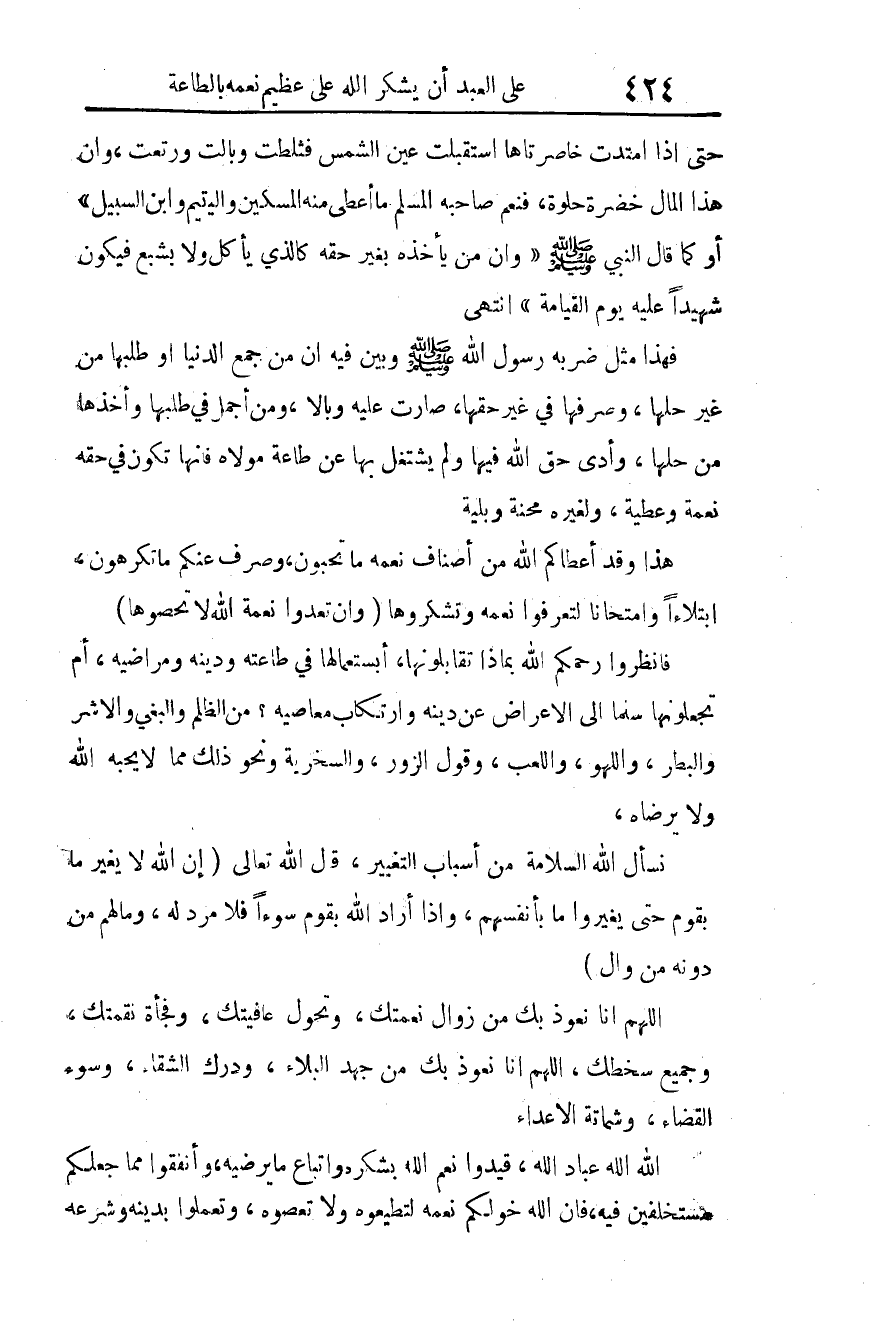 ٤٢٤ على العبد أن يشكر الله على عظيم نعمه بالطاعة
حتى اذا امتدت خاصرتاها استقبلت عين الشمس فثلطت وبالت ورتعت ، وان
هذا المال خضرة حلوة، فنعم صاحبه المسلم ما أعطى منه المسكين واليتيم وابن السبيل »
أو كما قال النبي ﷺ « وان من يأخذه بغير حقه كالذي يأكل ولا يشبع فيكون
شهيداً عليه يوم القيامة » انتهى
فهذا مثل ضربه رسول الله ﷺ وبين فيه ان من جمع الدنيا او طلبها من
غير حلها ، وصرفها في غير حقها، صارت عليه وبالا ، ومن أجمل في طلبها وأخذها
من حلها ، وأدى حق الله فيها ولم يشتغل بها عن طاعة مولاه فانها تكون في حقه
نعمة وعطية ، ولغيره محنة وبلية
هذا وقد أعطاكم الله من أصناف نعمه ما تحبون، وصرف عنكم ما تكرهون ،
ابتلاءاً وامتحانا لتعرفوا نعمه وتشكروها ( وان تعدوا نعمة الله لا تحصوها )
فانظروا رحمكم الله بماذا تقابلونها، أبستعمالها في طاعته ودينه ومراضيه ، أم
تجعلونها سلما الى الاعراض عن دينه وارتكاب معاصيه ؟ من الظلم والبغي والاشر
والبطر ، واللهو ، واللعب ، وقول الزور ، والسخرية ونحو ذلك مما لا يحبه الله
ولا يرضاه ،
نسأل الله السلامة من أسباب التغيير ، قل الله تعالى ( إن الله لا يغير ما
بقوم حتى يغيروا ما بأنفسهم ، واذا أراد الله بقوم سوءاً فلا مرد له ، ومالهم من
دونه من وال )
اللهم انا نعوذ بك من زوال نعمتك ، وتحول عافيتك ، وفجأة نقمتك ،
وجميع سخطك ، اللهم انا نعوذ بك من جهد البلاء ، ودرك الشقاء ، وسوء
القضاء ، وشماتة الاعداء
الله الله عباد الله ، قيدوا نعم الله بشكره واتباع ما يرضيه، وأنفقوا مما جعلكم
مستخلفين فيه، فان الله خولكم نعمه لتطيعوه ولا تعصوه ، وتعملوا بدينه وشرعه